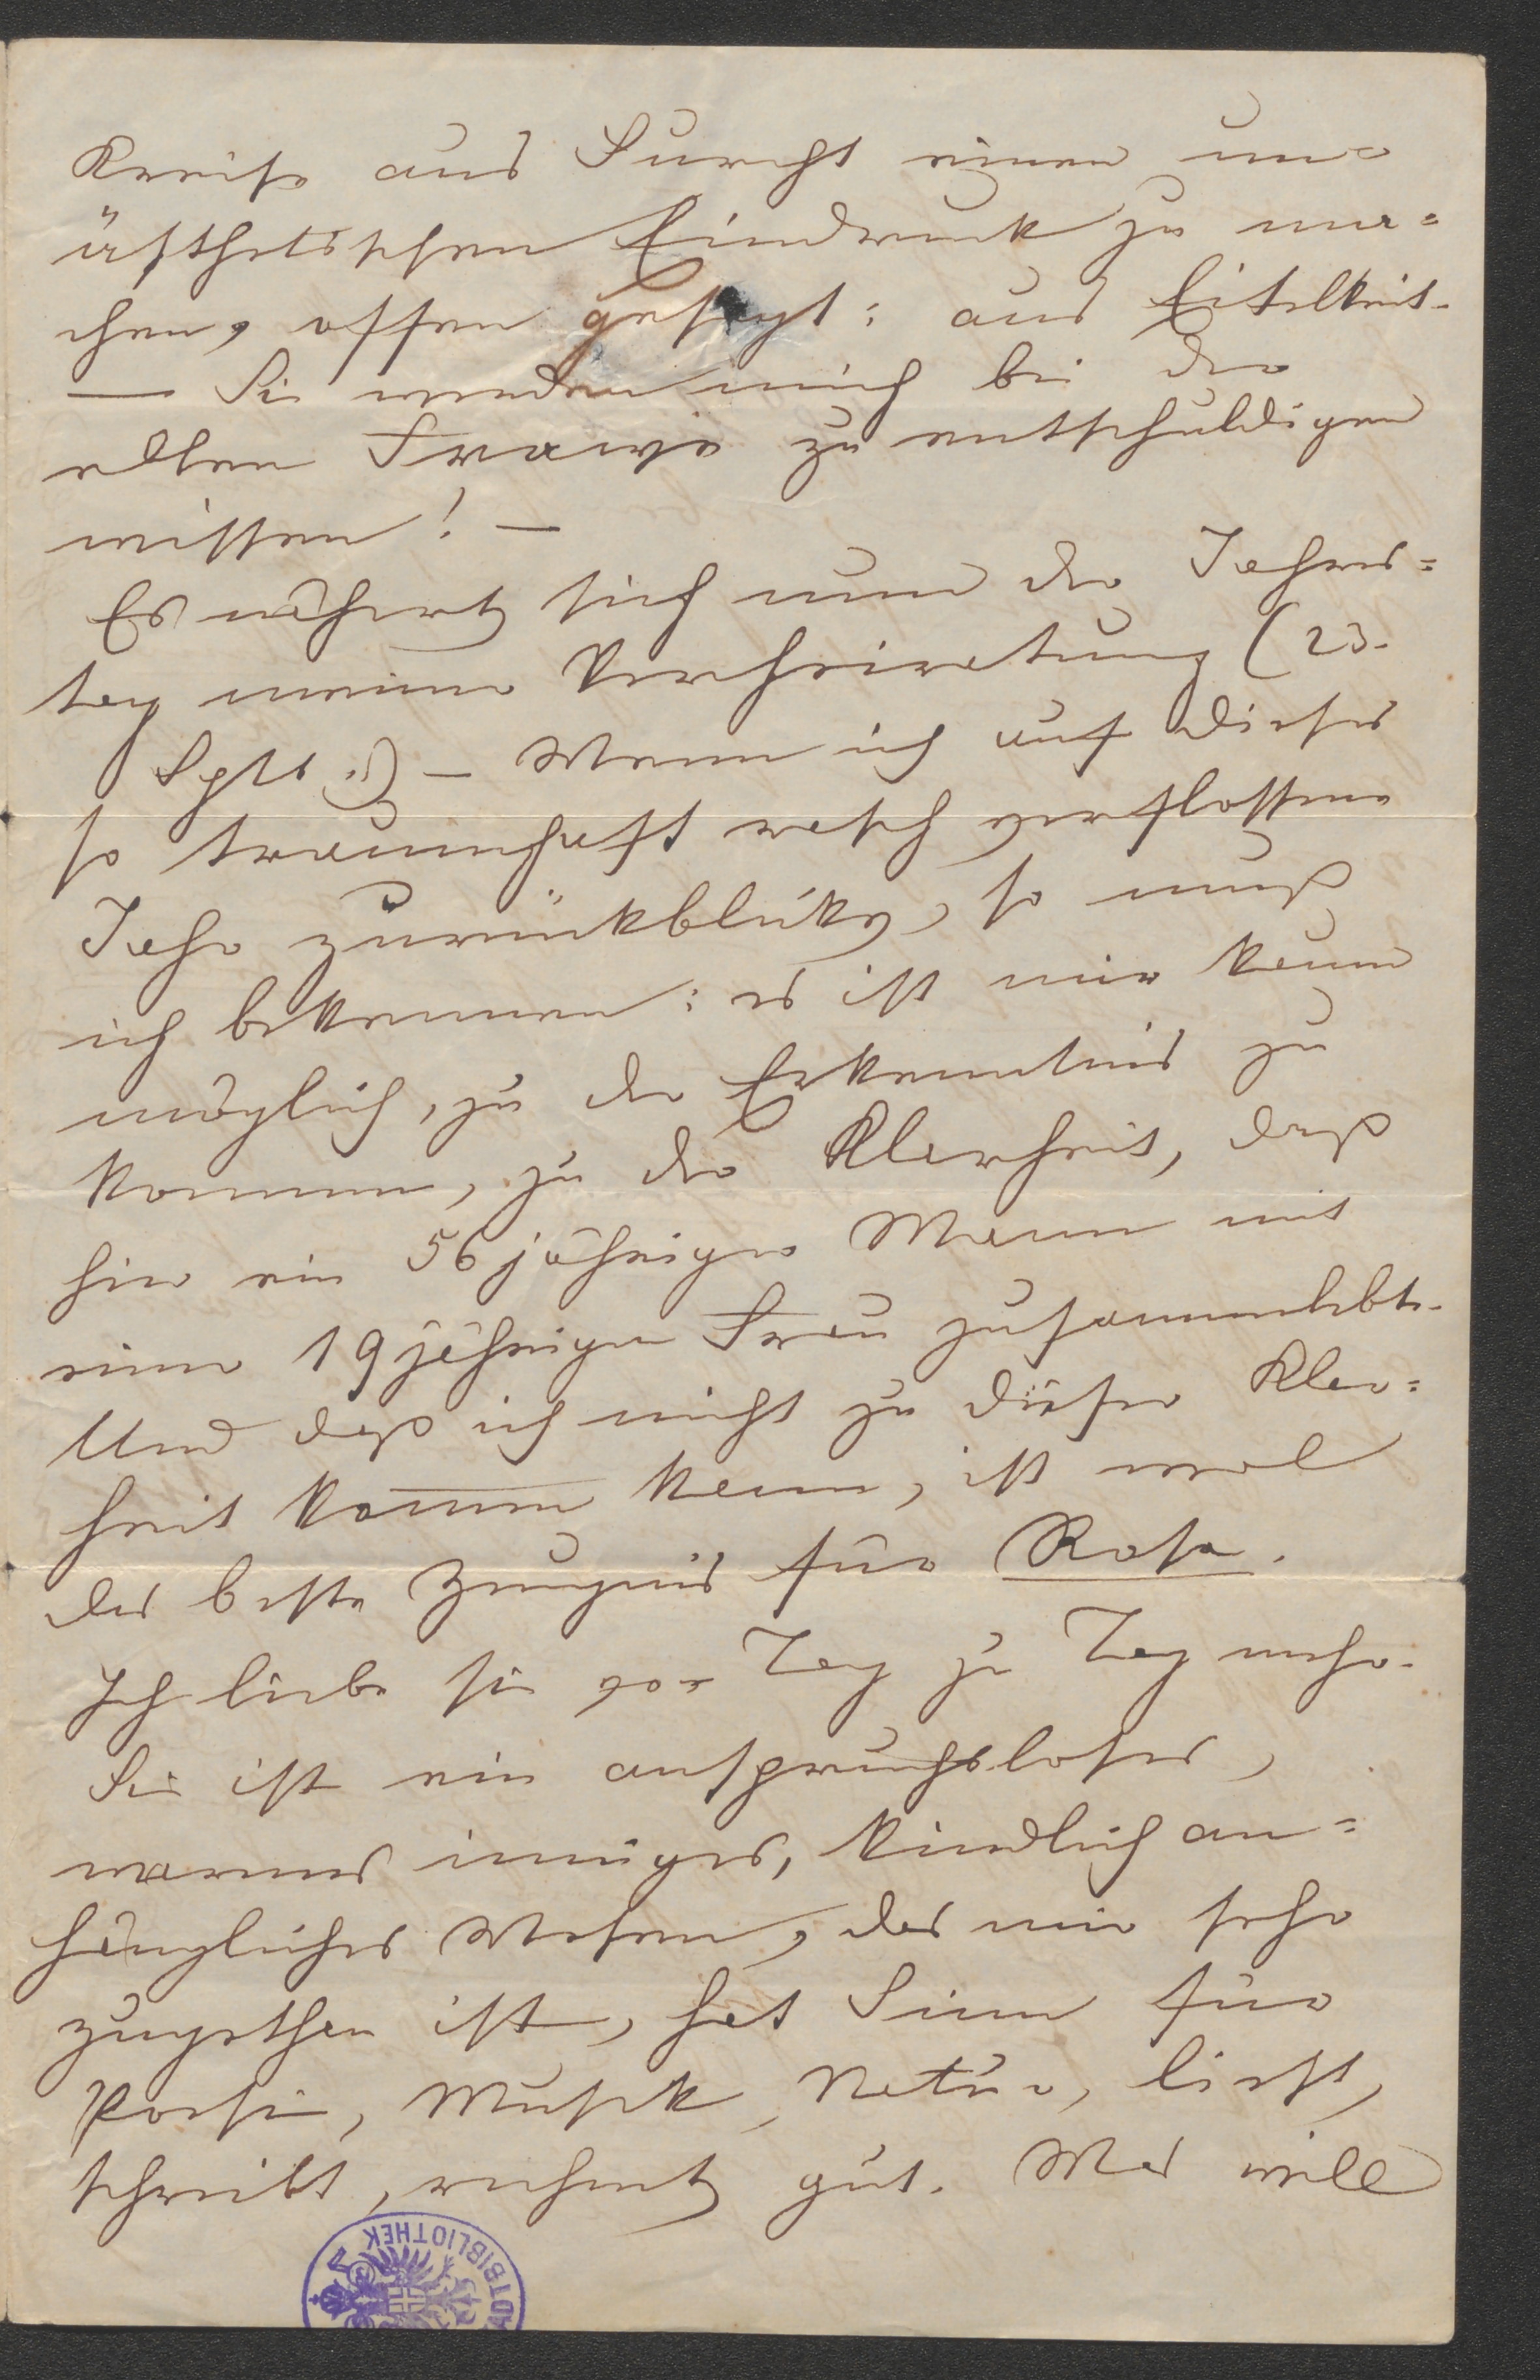 Kreise aus Furcht einen un=
ästhetischen Eindruck zu ma=
chen, offen gesagt: aus Eitelkeit.
— Sie werden mich bei der
edlen Frau zu entschuldigen
wissen! —
Es nähert sich nun der Jahres=
tag meiner Verheiratung (23.
Sptb.) – Wenn ich auf dieses
so traumhaft rasch verflossene
Jahr zurückblicke, so muß
ich bekennen: es ist mir kaum
möglich, zu der Erkenntnis zu
kommen, zu der Klarheit, daß
hier ein 56jähriger Mann mit
einer 19jährigen Frau zusammenlebte.
Und daß ich nicht zu dieser Klar=
heit kommen kann, ist wol
das beste Zeugnis für Rosa.
Ich liebe sie von Tag zu Tag mehr.
Sie ist ein anspruchsloses,
warmes inniges, kindlich an=
hängliches Wesen, das mir sehr
zugethan ist, hat Sinn für
Poesie, Musik, Natur, liest,
schreibt, rechnet gut. Was will
STADTBIBLIOTHEK